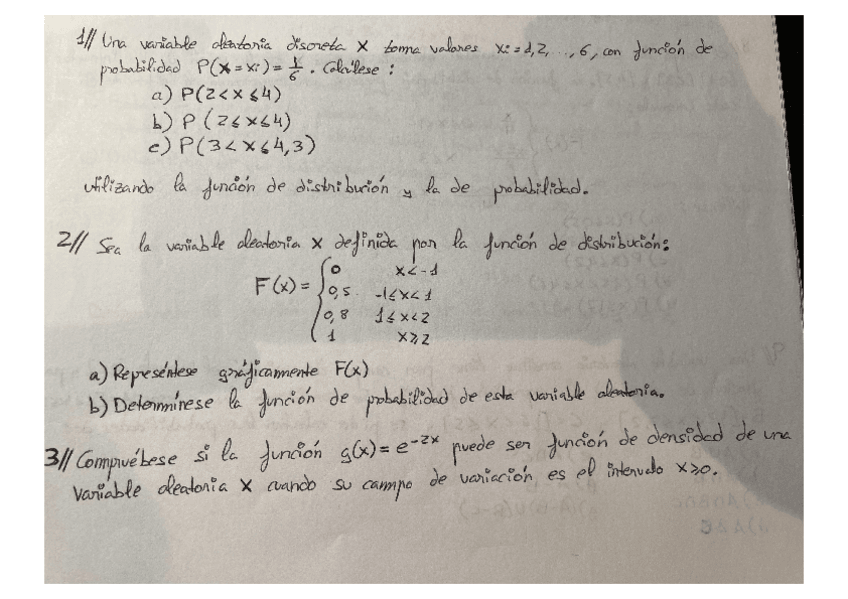 1// Una variable aleatoria discreta X toma valores xi = 1, 2, ..., 6, con función de
probabilidad P(X = xi) = 1/6. Calcúlese:
a) P(2 < x ≤ 4)
b) P (2 ≤ x ≤ 4)
c) P(3 < x ≤ 4,3)
utilizando la función de distribución y la de probabilidad.
2// Sea la variable aleatoria X definida por la función de distribución:
F(x) = { 0 x < -1
0,5 -1 ≤ x < 1
0,8 1 ≤ x < 2
1 x ≥ 2
a) Represéntese gráficamente F(x)
b) Determínese la función de probabilidad de esta variable aleatoria.
3// Compruébese si la función g(x) = e^-2x puede ser función de densidad de una
variable aleatoria X cuando su campo de variación es el intervalo x ≥ 0.